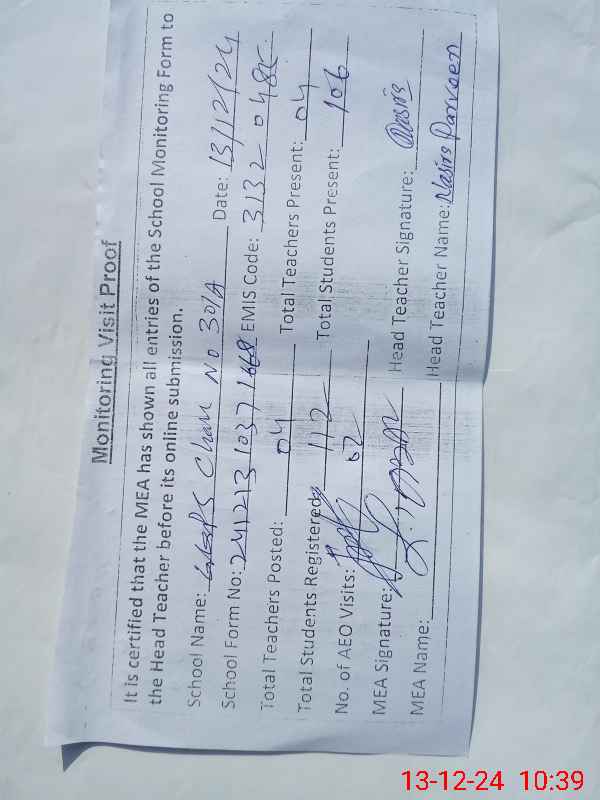 Monitoring Visit Proof
It is certified that the MEA has shown all entries of the School Monitoring Form to
the Head Teacher before its online submission.
School Name: Chak No 301A Date: 13/12/24
School Form No: 241213 1037 1668 EMIS Code: 3132 0485
Total Teachers Posted: 04 Total Teachers Present: 04
Total Students Registered: 112 Total Students Present: 106
No. of AEO Visits: 02
MEA Signature: Head Teacher Signature:
MEA Name: Head Teacher Name: Nasira Parveen
13-12-24 10:39